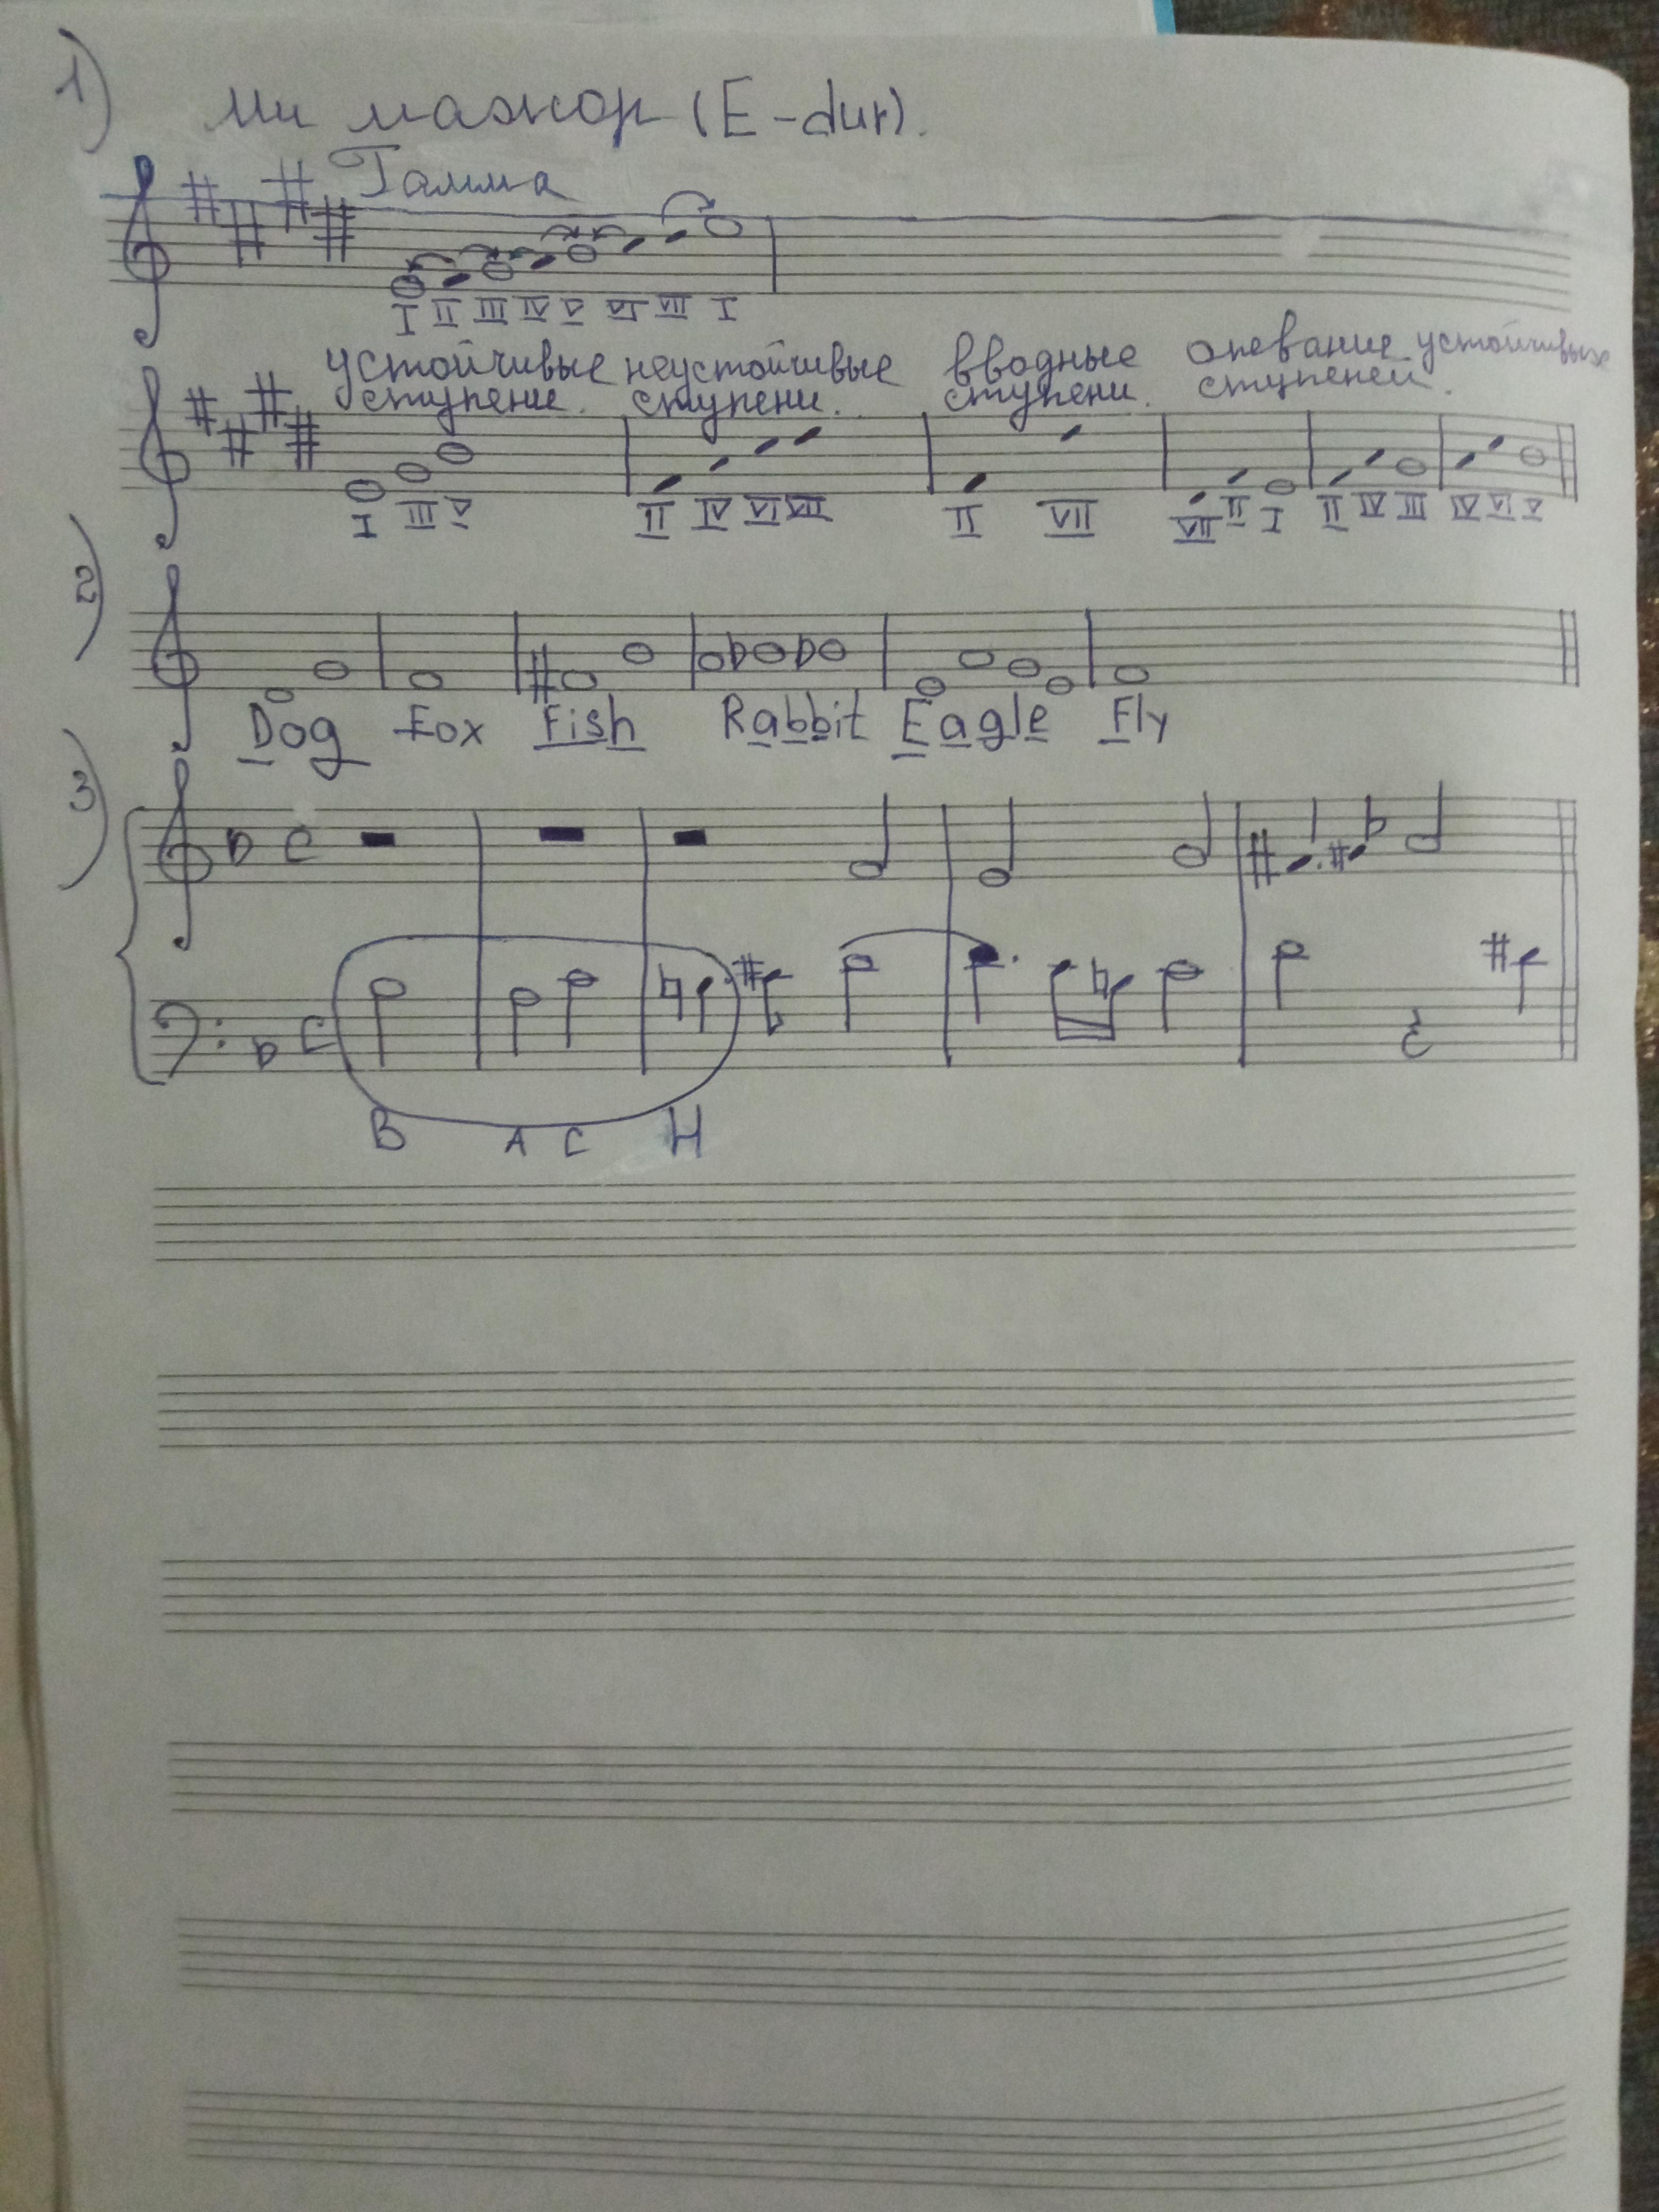 1)
Ми мажор (E-dur).
Гамма
I II III IV V VI VII I
устойчивые неустойчивые вводные опевание устойчивых
ступени. ступени. ступени. ступеней.
I III V II IV VI VII II VII VII II I II IV III IV VI V
2)
Dog Fox Fish Rabbit Eagle Fly
3)
C
C
B A C H